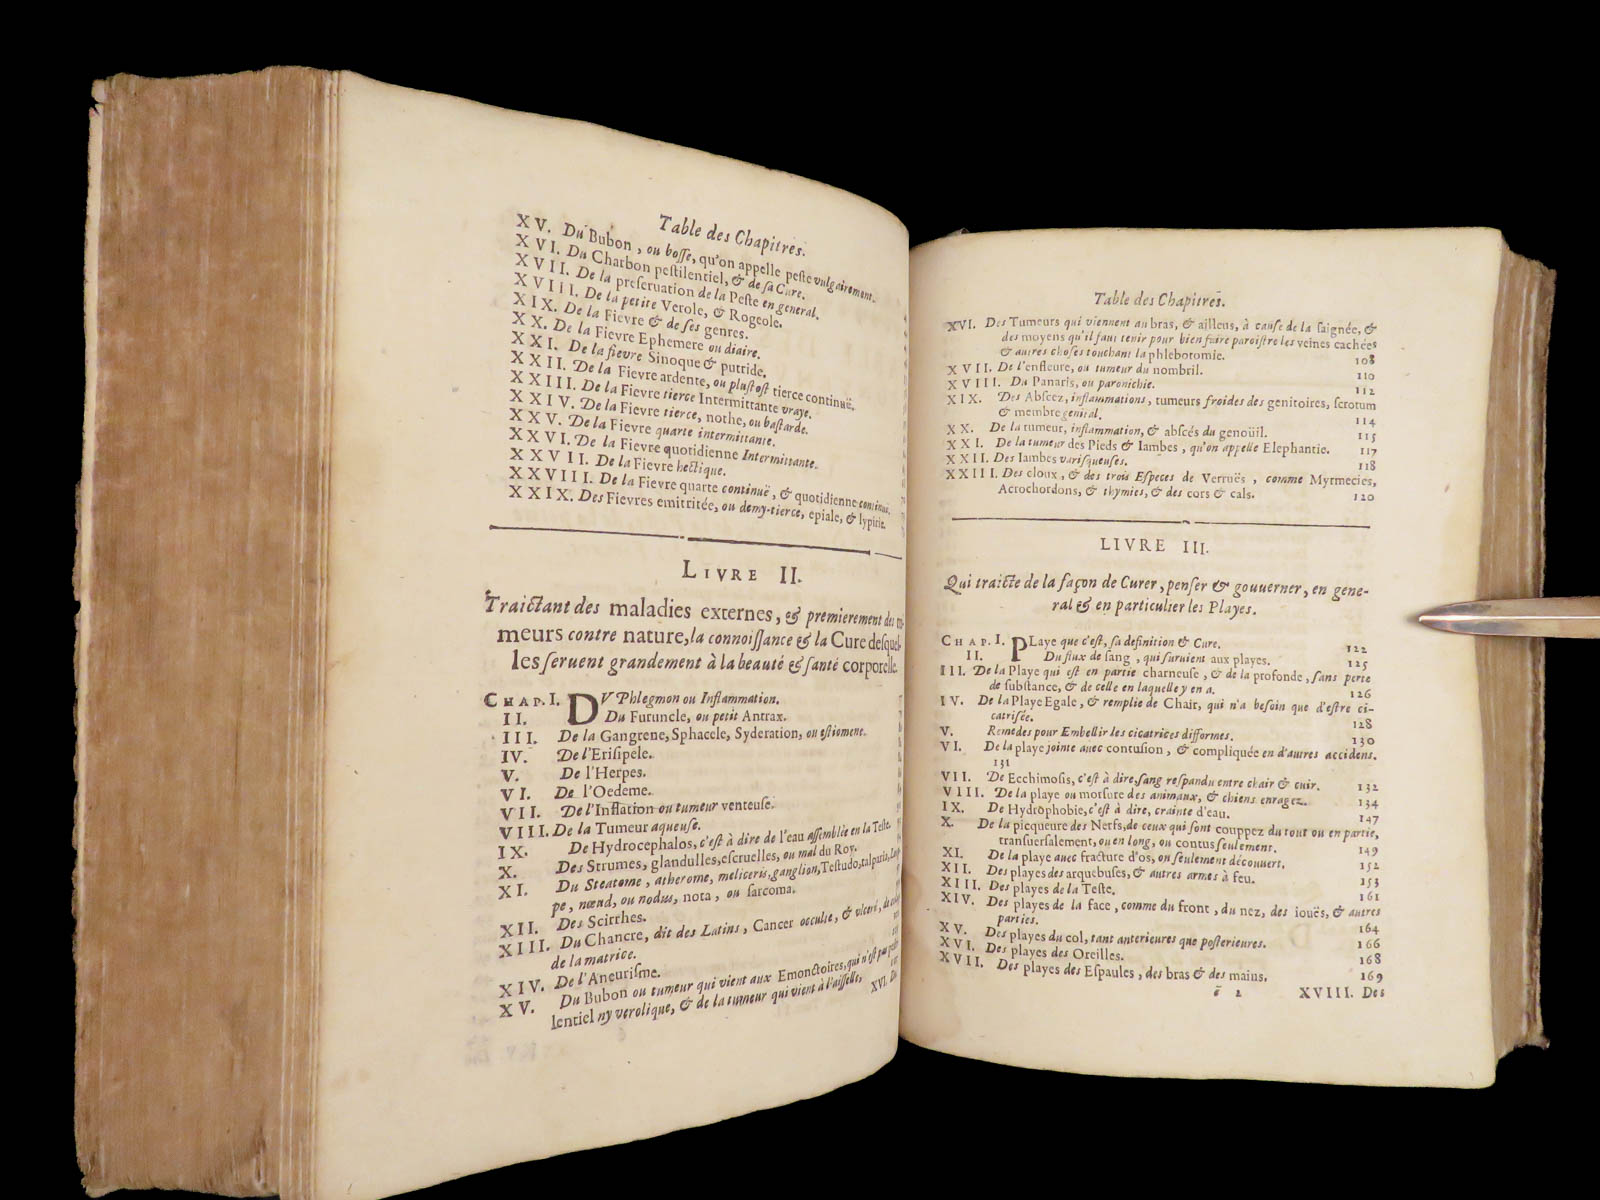 Table des Chapitres.
XV. Du Bubon, ou bosse, qu'on appelle peste vulgairement.
XVI. Du Charbon pestilentiel, & de sa Cure.
XVII. De la preseruation de la Peste en general.
XVIII. De la petite Verole, & Rogeole.
XIX. De la Fievre & de ses genres.
XX. De la Fievre Ephemere ou diaire.
XXI. De la fievre Sinoque & putride.
XXII. De la Fievre ardente, ou plustost tierce continuë.
XXIII. De la Fievre tierce Intermittante vraye.
XXIV. De la Fievre tierce, nothe, ou bastarde.
XXV. De la Fievre quarte intermittante.
XXVI. De la Fievre quotidienne Intermittante.
XXVII. De la Fievre hectique.
XXVIII. De la Fievre quarte continuë, & quotidienne continuë.
XXIX. Des Fievres emitritée, ou demy-tierce, epiale, & lypirie.
LIVRE II.
Traictant des maladies externes, & premierement des tu-
meurs contre nature, la connoissance & la Cure desquel-
les seruent grandement à la beauté & santé corporelle.
CHAP. I. DV Phlegmon ou Inflammation.
II. Du Furuncle, ou petit Antrax.
III. De la Gangrene, Sphacele, Syderation, ou estioment.
IV. De l'Erisipele.
V. De l'Herpes.
VI. De l'Oedeme.
VII. De l'Inflation ou tumeur venteuse.
VIII. De la Tumeur aqueuse.
IX. De Hydrocephalos, c'est à dire de l'eau assemblée en la Teste.
X. Des Strumes, glandulles, escruelles, ou mal du Roy.
XI. Du Steatome, atherome, meliceris, ganglion, Testudo, talparia, Lup-
pe, nœnd, ou nodus, nota, ou sarcoma.
XII. Des Scirrhes.
XIII. Du Chancre, dit des Latins, Cancer occulte, & vlceré, de
de la matrice.
XIV. De l'Aneurisme.
XV. Du Bubon ou tumeur qui vient aux Emonctoires, qui n'est pas pesti-
lentiel ny verolique, & de la tumeur qui vient à l'aisselle,
XVI. Des
Table des Chapitres.
XVI. Des Tumeurs qui viennent au bras, & ailleus, à cause de la saignée, &
des moyens qu'il faut tenir pour bien faire paroistre les veines cachées
& autres choses touchant la phlebotomie. 108
XVII. De l'enfleure, ou tumeur du nombril. 110
XVIII. Du Panaris, ou paronichie. 112
XIX. Des Abscez, inflammations, tumeurs froides des genitoires, scrotum
& membre genital. 114
XX. De la tumeur, inflammation, & abscés du genoüil. 115
XXI. De la tumeur des Pieds & Iambes, qu'on appelle Elephantie. 117
XXII. Des Iambes varisqueuses. 118
XXIII. Des cloux, & des trois Especes de Verruës, comme Myrmecies,
Acrochordons, & thymies, & des cors & cals. 120
LIVRE III.
Qui traicte de la façon de Curer, penser & gouuerner, en gene-
ral & en particulier les Playes.
CHAP. I. PLaye que c'est, sa definition & Cure. 122
II. Du flux de sang, qui suruient aux playes. 125
III. De la Playe qui est en partie charneuse, & de la profonde, sans perte
de substance, & de celle en laquelle y en a. 126
IV. De la Playe Egale, & remplie de Chair, qui n'a besoin que d'estre ci-
catrisée. 128
V. Remedes pour Embellir les cicatrices difformes. 130
VI. De la playe jointe auec contusion, & compliquée en d'autres accidens.
131
VII. De Ecchimosis, c'est à dire, sang respandu entre chair & cuir. 132
VIII. De la playe ou morsure des animaux, & chiens enragez. 134
IX. De Hydrophobie, c'est à dire, crainte d'eau. 147
X. De la picqueure des Nerfs, de ceux qui sont couppez du tout ou en partie,
transuersalement, ou en long, ou contus seulement. 149
XI. De la playe auec fracture d'os, ou seulement découuert. 152
XII. Des playes des arquebuses, & autres armes à feu. 153
XIII. Des playes de la Teste. 161
XIV. Des playes de la face, comme du front, du nez, des iouës, & autres
parties. 164
XV. Des playes du col, tant anterieures que posterieures. 166
XVI. Des playes des Oreilles. 168
XVII. Des playes des Espaules, des bras & des mains. 169
ē 2 XVIII. Des